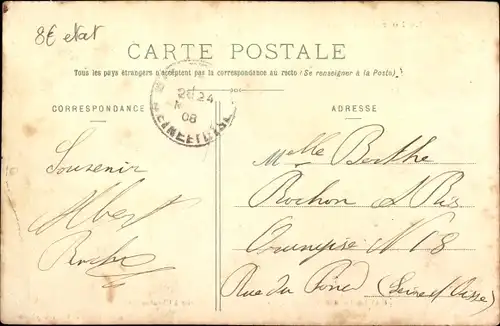 8€ etat
CARTE POSTALE
Tous les pays étrangers n'acceptent pas la correspondance au recto (Se renseigner à la Poste)
CORRESPONDANCE
Souvenir
Albert
Roche
24
08
SEINE-ET-OISE
ADRESSE
Melle Berthe
Rochon
N 18
Rue du (Seine et Oise)